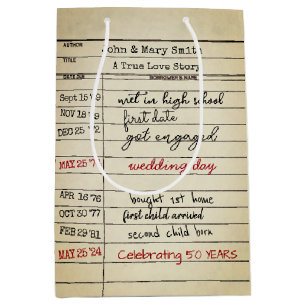 AUTHOR John & Mary Smith
TITLE A True Love Story
DATE DUE BORROWER'S NAME
Sept 15 met in high school
NOV 18 first date
DEC 25 got engaged
MAY 25 wedding day
APR 16 '76 bought 1st home
OCT 30 '77 first child arrived
FEB 29 '81 second child born
MAY 25 '24 Celebrating 50 YEARS